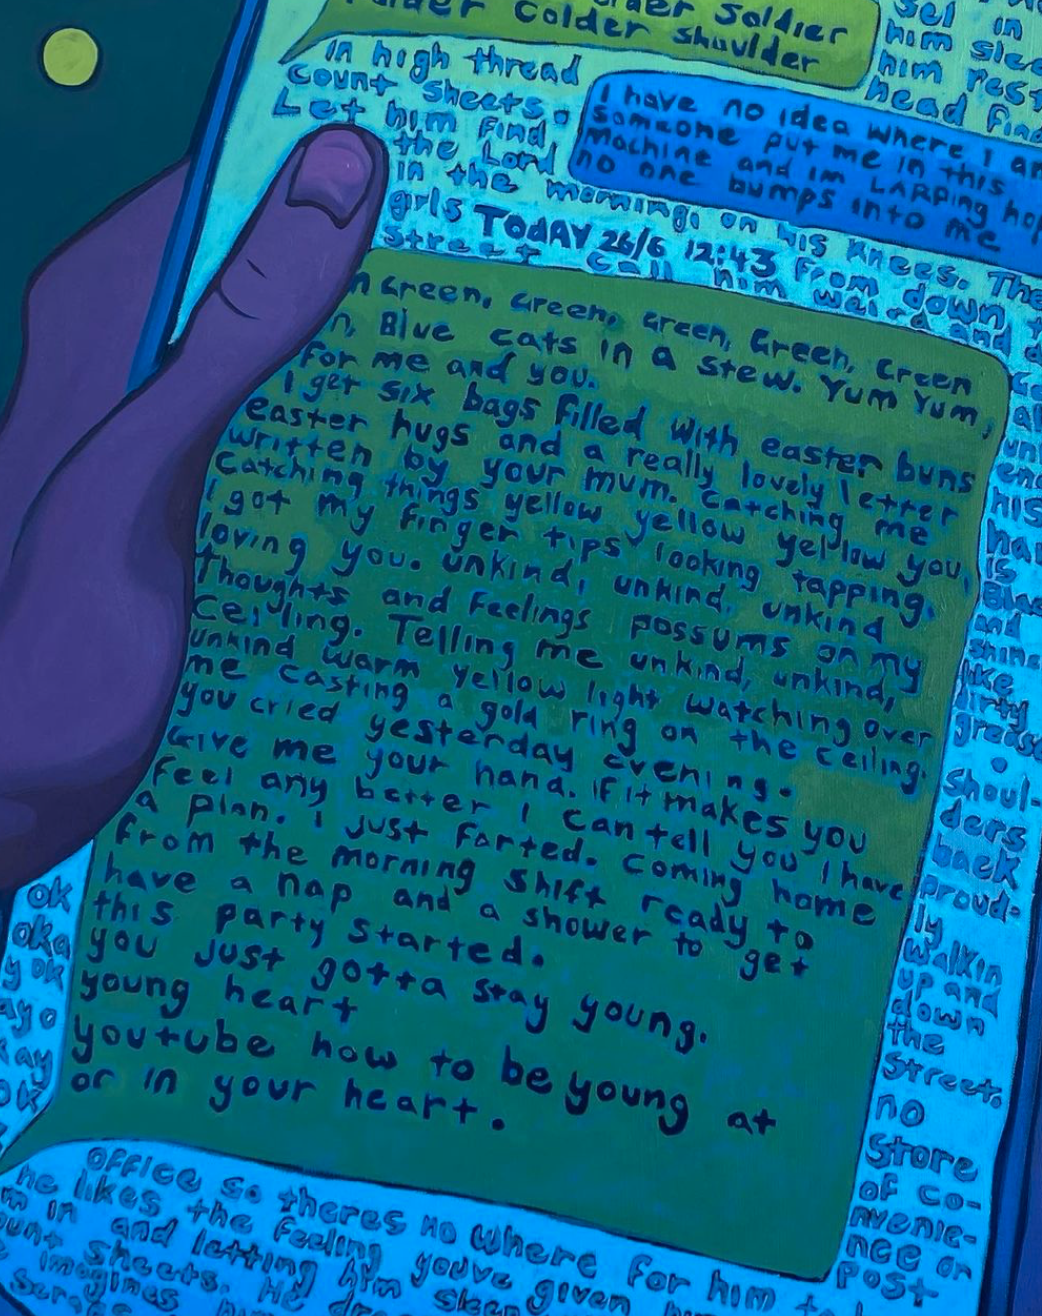 Colder Shoulder
in high thread
count sheets.
Let him find
the Lord
in the morning on his knees. The
girls
street call him weird and
from down
sel in
him
him rest
head find
I have no idea where I am
someone put me in this
Machine and im LARPing
no one bumps into me
TODAY 26/6 12:43
Green, Green, Green, Green, Green
Blue cats in a stew. Yum Yum,
for me and you.
I get six bags filled with easter buns
easter hugs and a really lovely letter
written by your mum. catching me
catching things yellow yellow yellow you,
I got my finger tips looking tapping.
loving you. unkind, unkind, unkind
Thoughts and feelings possums on my
ceiling. Telling me unkind, unkind,
unkind warm yellow light watching over
me casting a gold ring on the ceiling.
you cried yesterday evening.
Give me your hand. if it makes you
feel any better I can tell you I have
a plan. I just farted. coming home
from the morning shift ready to
have a nap and a shower to get
this party started.
you just gotta stay young.
young heart
youtube how to be young at
or in your heart.
his
is
and
shine
like
dirty
grease
Shoul-
ders
back
proud-
ly
walkin
up and
down
the
street.
no
store
of co-
nvenie-
nce or
post
ok
office so theres no where for him
he likes the feeling you've given
in and letting him sleep
sheets. He
imagines